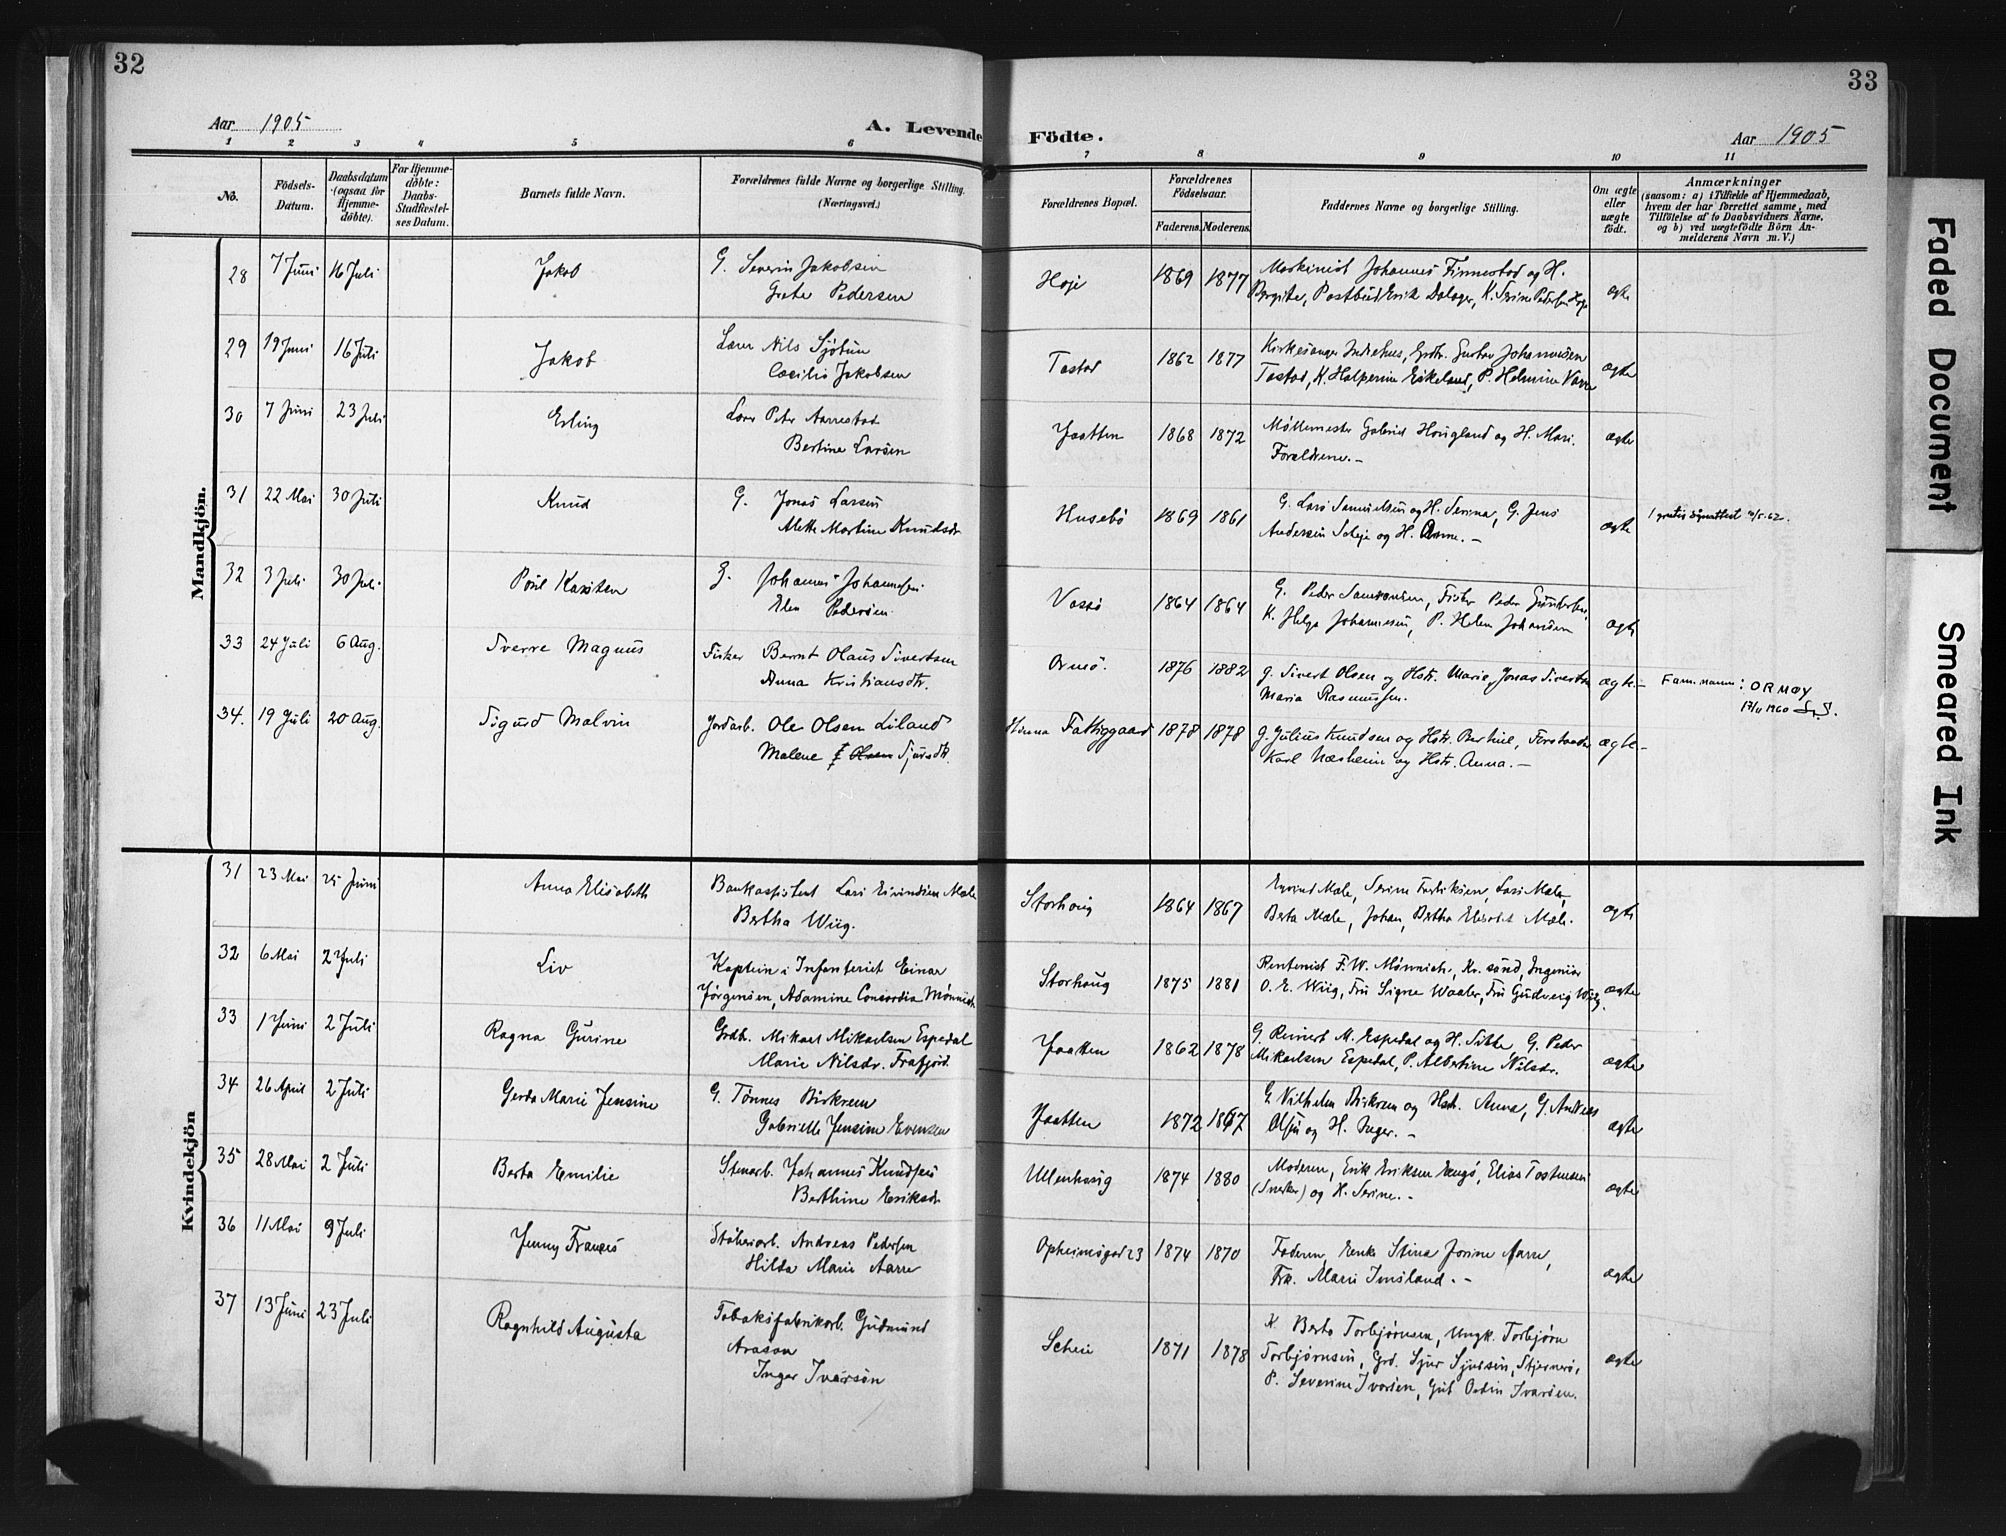 32
33
Aar 1905
A. Levende Födte.
Aar 1905
1 2 3 4 5 6 7 8 9 10 11
No.
Födsels-Datum.
Daabsdatum (ogsaa for Hjemme-döbte).
For Hjemme-døbte: Daabs-Stadfæstel-ses Datum.
Barnets fulde Navn.
Forældrenes fulde Navne og borgerlige Stilling. (Næringsvei.)
Forældrenes Bopæl.
Forældrenes Födselsaar.
Faderens. Moderens.
Faddernes Navne og borgerlige Stilling.
Om ægte eller uægte födt.
Anmærkninger
(saasom: a) i Tilfælde af Hjemmedaab, hvem der har forrettet samme, med Tilföielse af to Daabsvidners Navne, og b) ved uægtefödte Börn An-melderens Navn m. V.)
Mandkjön.
28 7 Juni 16 Juli Jakob G. Severin Jakobsen
Grete Pedersen
Hoje 1869 1877 Maskinist Johannes Finnestad og H.
Bergite, Postbud Erik Dalager, K. Serine Pedersen ægte
29 19 Juni 16 Juli Jakob Lærer Nils Sjøtun
Cæcilie Jakobsen
Tastad 1862 1877 Kirkesanger Indrehus, Grdr. Gustav Johannesen
Tastad, K. Halperine Eskeland, P. Helmine ægte
30 7 Juni 23 Juli Erling Lærer Peter Aarrestad
Bertine Larsen
Jaatten 1868 1872 Møllemester Gabriel Haugland og H. Mari.
Forældrene.- ægte
31 22 Mai 30 Juli Knud G. Jonas Larsen
Alette Martine Knudsdr
Husebø 1869 1861 G. Lars Samuelsen og H. Serina, G. Jens
Andersen og H. Anne.- ægte
32 3 Juli 30 Juli Poul Karsten G. Johannes Johannessen
Elen Pedersen
Vassø 1864 1864 G. Peder Samsonsen, Fisker Peder Gundersen,
K. Helga Johannesen, P. Helen Johansen ægte
33 24 Juli 6 Aug. Sverre Magnus Fisker Bernt Olaus Sivertsen
Anna Kristiansdtr.
Ormø. 1876 1882 G. Sivert Olsen og Hstr. Marie, Jonas Sivertsen
Maria Rasmussen. ægte- Fam.navn: ORMØY
17/11 1960
34. 19 Juli 20 Aug. Sigud Malvin Jordarb. Ole Olsen Liland
Malene Olsen Sjursdtr.
Hinna Fattiggaard 1878 1878 G. Julius Knudsen og Hstr. Bertine, Forstander
Karl Næsheim og Hstr. Anna.- ægte-
Kvindekjön
31 23 Mai 25 Juni Anna Elisabeth Bankassistent Lars Eivindsen Mæle
Bertha Wiig.
Storhaug 1864 1867 Eyvind Mæle, Serine Fredriksen, Lars Mæle,
Berta Mæle, Johan, Bertha Elisabet Mæle. ægte
32 6 Mai 2 Juli Liv Kaptein i Infanteriet Einar
Jørgensen, Adamine Concordia Mønnich
Storhaug 1875 1881 Rentenist F.W. Mønnich, Kr.sand, Ingeniør
O. E. Wiig, Fru Signe Waaler, Fru Gudveig Wiig. ægte
33 1 Juni 2 Juli Ragna Gurine Grdb. Mikael Mikaelsen Espedal
Marie Nilsdr. Frafjord.
Jaatten 1862 1878 G. Reinert M. Espedal og H. Sille G. Peder
Mikaelsen Espedal, P. Albertine Nilsdr. ægte
34 26 April 2 Juli Gerda Marie Jensine G. Tønnes Birkrem
Gabrielle Jensine Evensen
Jaatten 1872 1867 G. Vilhelm Birkrem og Hstr. Anna, G. Andreas
og H. Inger.- ægte
35 28 Mai 2 Juli Berta Emilie Stenarb. Johannes Knudsen
Berthine Eriksdr
Ullenhaug 1874 1880 Moderen, Erik Eriksen, Elias Tostensen
(Snedker) og H. Serine.- ægte
36 11 Mai 9 Juli Jenny Frances Støberiarb. Andreas Pedersen
Hilda Marie Aarre
Opheimsgad 23 1874 1870 Faderen, Enke Stina Josine Aarre,
Frk. Marie Imsland.- ægte
37 13 Juni 23 Juli Ragnhild Augusta Tobaksfabrikarb. Gudmund
Arason
Inger Ivarsøn
Scheie 1871 1878 K. Berta Torbjørnsen, Ungk. Torbjørn
Torbjørnsen, Grd. Sjur Sjursen, Stjernerø,
P. Severine Ivarsen, Gut Odin Ivarsen. ægte
Faded Document
Smeared Ink